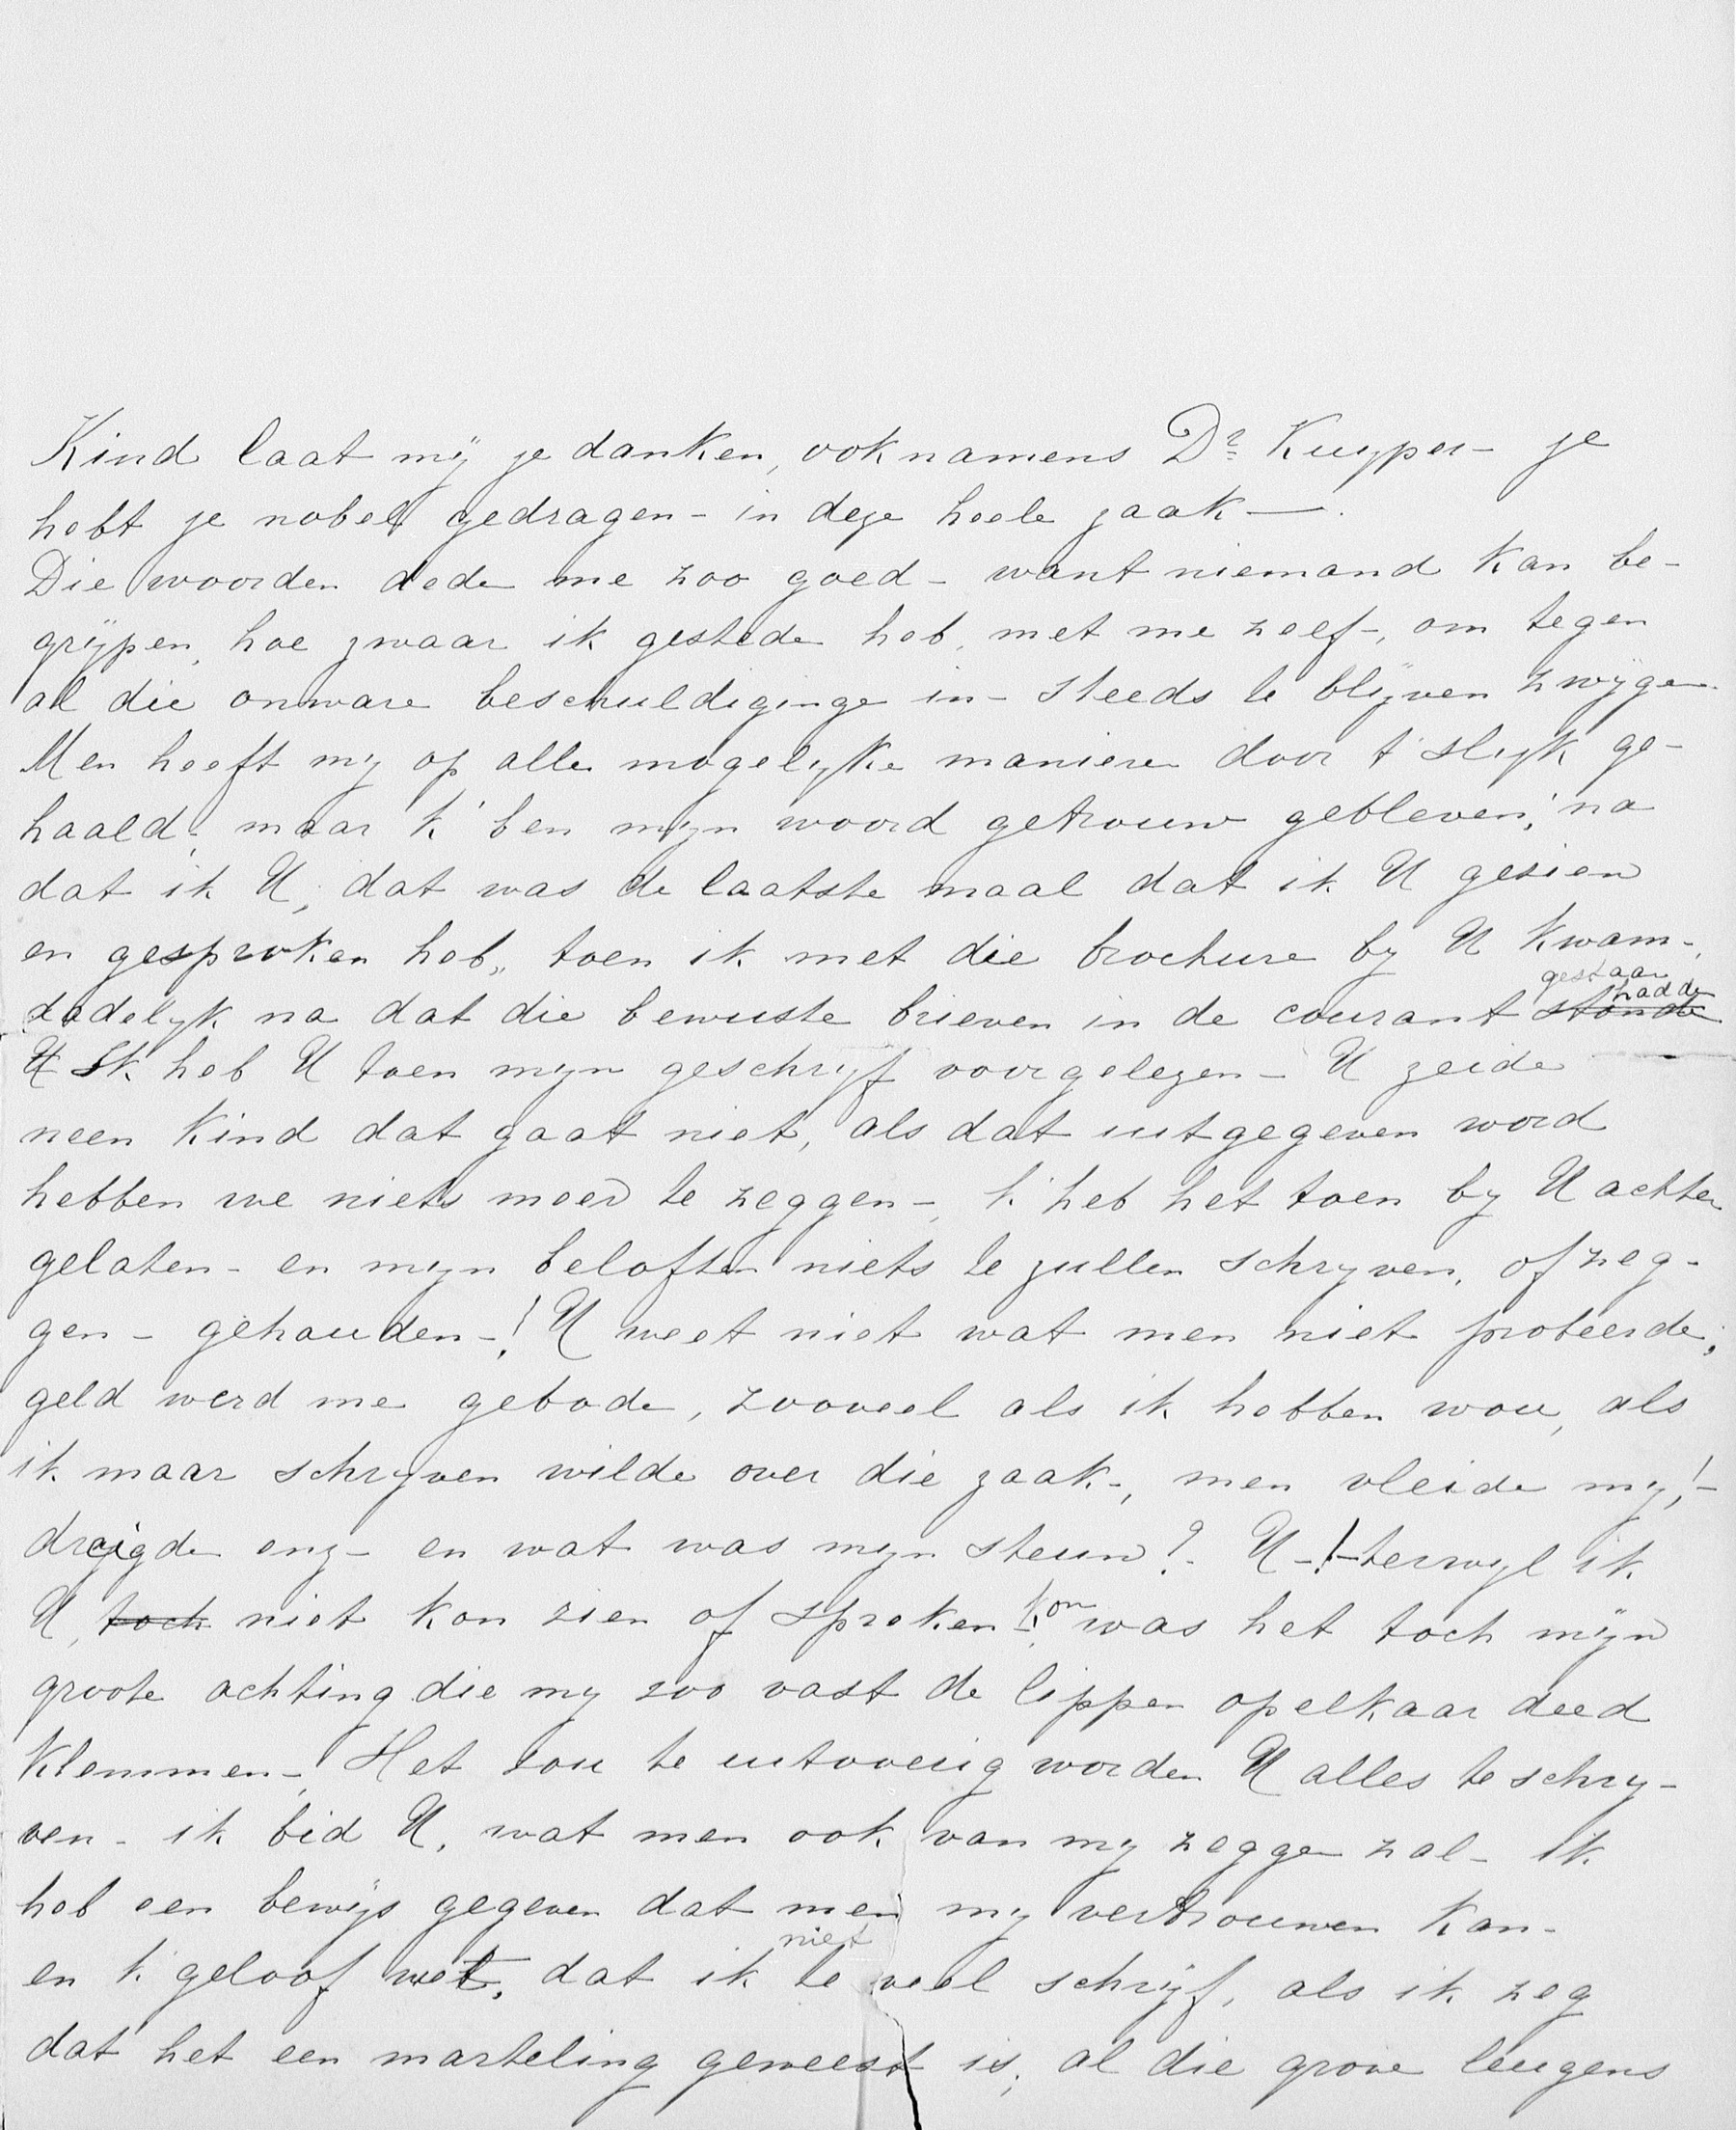 Kind laat mij je danken, ook namens Dr. Kuyper – je
hebt je nobel gedragen – in deze heele zaak –.
Die woorden dede me zoo goed – want niemand kan be-
grijpen, hoe zwaar ik gestrede heb, met me zelf –, om tegen
al die onware beschuldiginge in – steeds te blijven zwijgen
Men heeft mij op alle mogelyke maniere door t' slijk ge-
haald; maar k' ben mijn woord getrouw gebleven; na
dat ik U, dat was de laatste maal dat ik U gezien
en gesproken heb,, toen ik met die brochure by U kwam –,
dadelyk na dat die bewuste brieven in de courant gestaan hadde stonde
U Ik heb U toen myn geschryf voorgelezen – U zeide
neen Kind dat gaat niet, als dat uitgegeven word
hebben we niets meer te zeggen –, k' heb het toen by U achter
gelaten – en mijn belofte niets te zullen schryven, of zeg-
gen – gehouden –! U weet niet wat men niet probeerde;
geld werd me gebode, zooveel als ik hebben wou, als
ik maar schryven wilde over die zaak –, men vleide my! –
dreigde enz – en wat was myn steun? – U –! – terwyl ik
U, toch niet kon zien of spreken kon was het toch mijn
groote achting die my zoo vast de lippen opelkaar deed
klemmen –! Het zou te uitvoerig worden U alles te schry-
ven – ik bid U, wat men ook van my zegge zal – ik
heb een bewijs gegeven dat men my vertrouwen kan –
en k' geloof dat ik niet te veel schrijf, als ik zeg
dat het een marteling geweest is, al die grove leugens